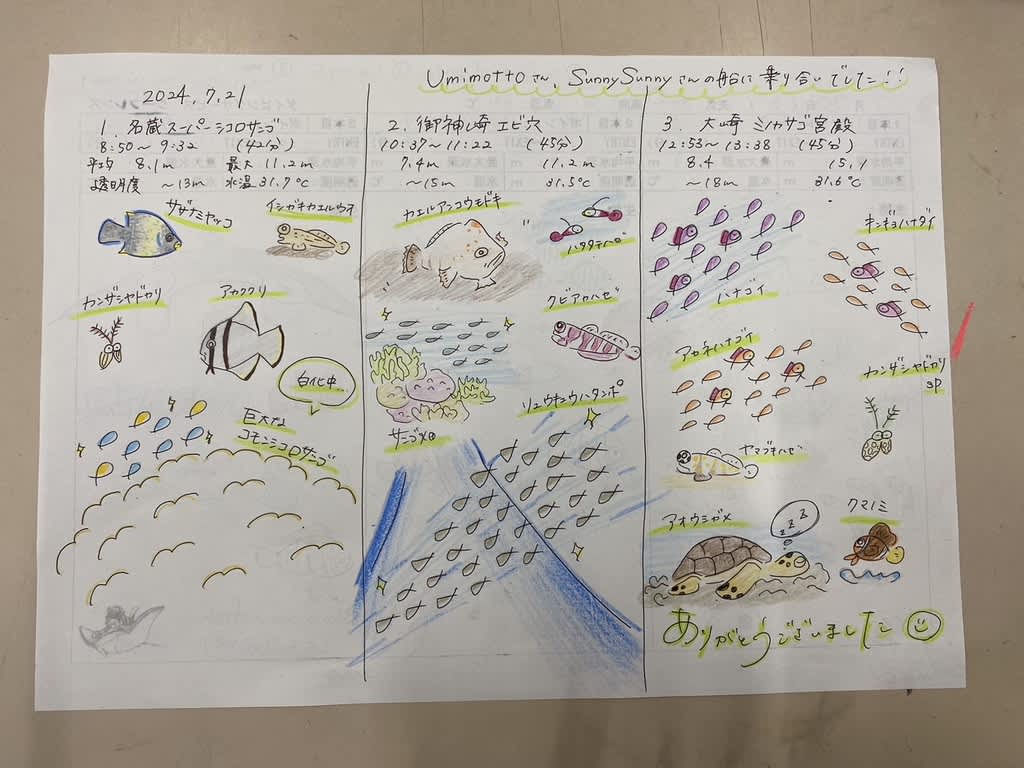 Umimottoさん、SunnySunnyさんの船に乗り合いでした!!
2024.7.21
1. 名蔵スーパーシコロサンゴ
8:50～9:32 (42分)
平均 8.1m 最大 11.2m
透明度 ～13m 水温 31.7℃
サザナミヤッコ
イシガキカエルウオ
カンザシヤドカリ
アカククリ
白化中
巨大な
コモンシコロサンゴ
2. 御神崎 エビ穴
10:37～11:22 (45分)
7.4m 11.2m
～15m 31.5℃
カエルアンコウモドキ
ハタタテハゼ
クビアカハゼ
サンゴ
リュウキュウハタンポ
3. 大崎 ミノカサゴ宮殿
12:53～13:38 (45分)
8.4 15.1
～18m 31.6℃
ハナゴイ
キンギョハナダイ
アカネハナゴイ
カンザシヤドカリ
sp
ヤマブキハゼ
アオウミガメ
zzz
クマノミ
ありがとうございました